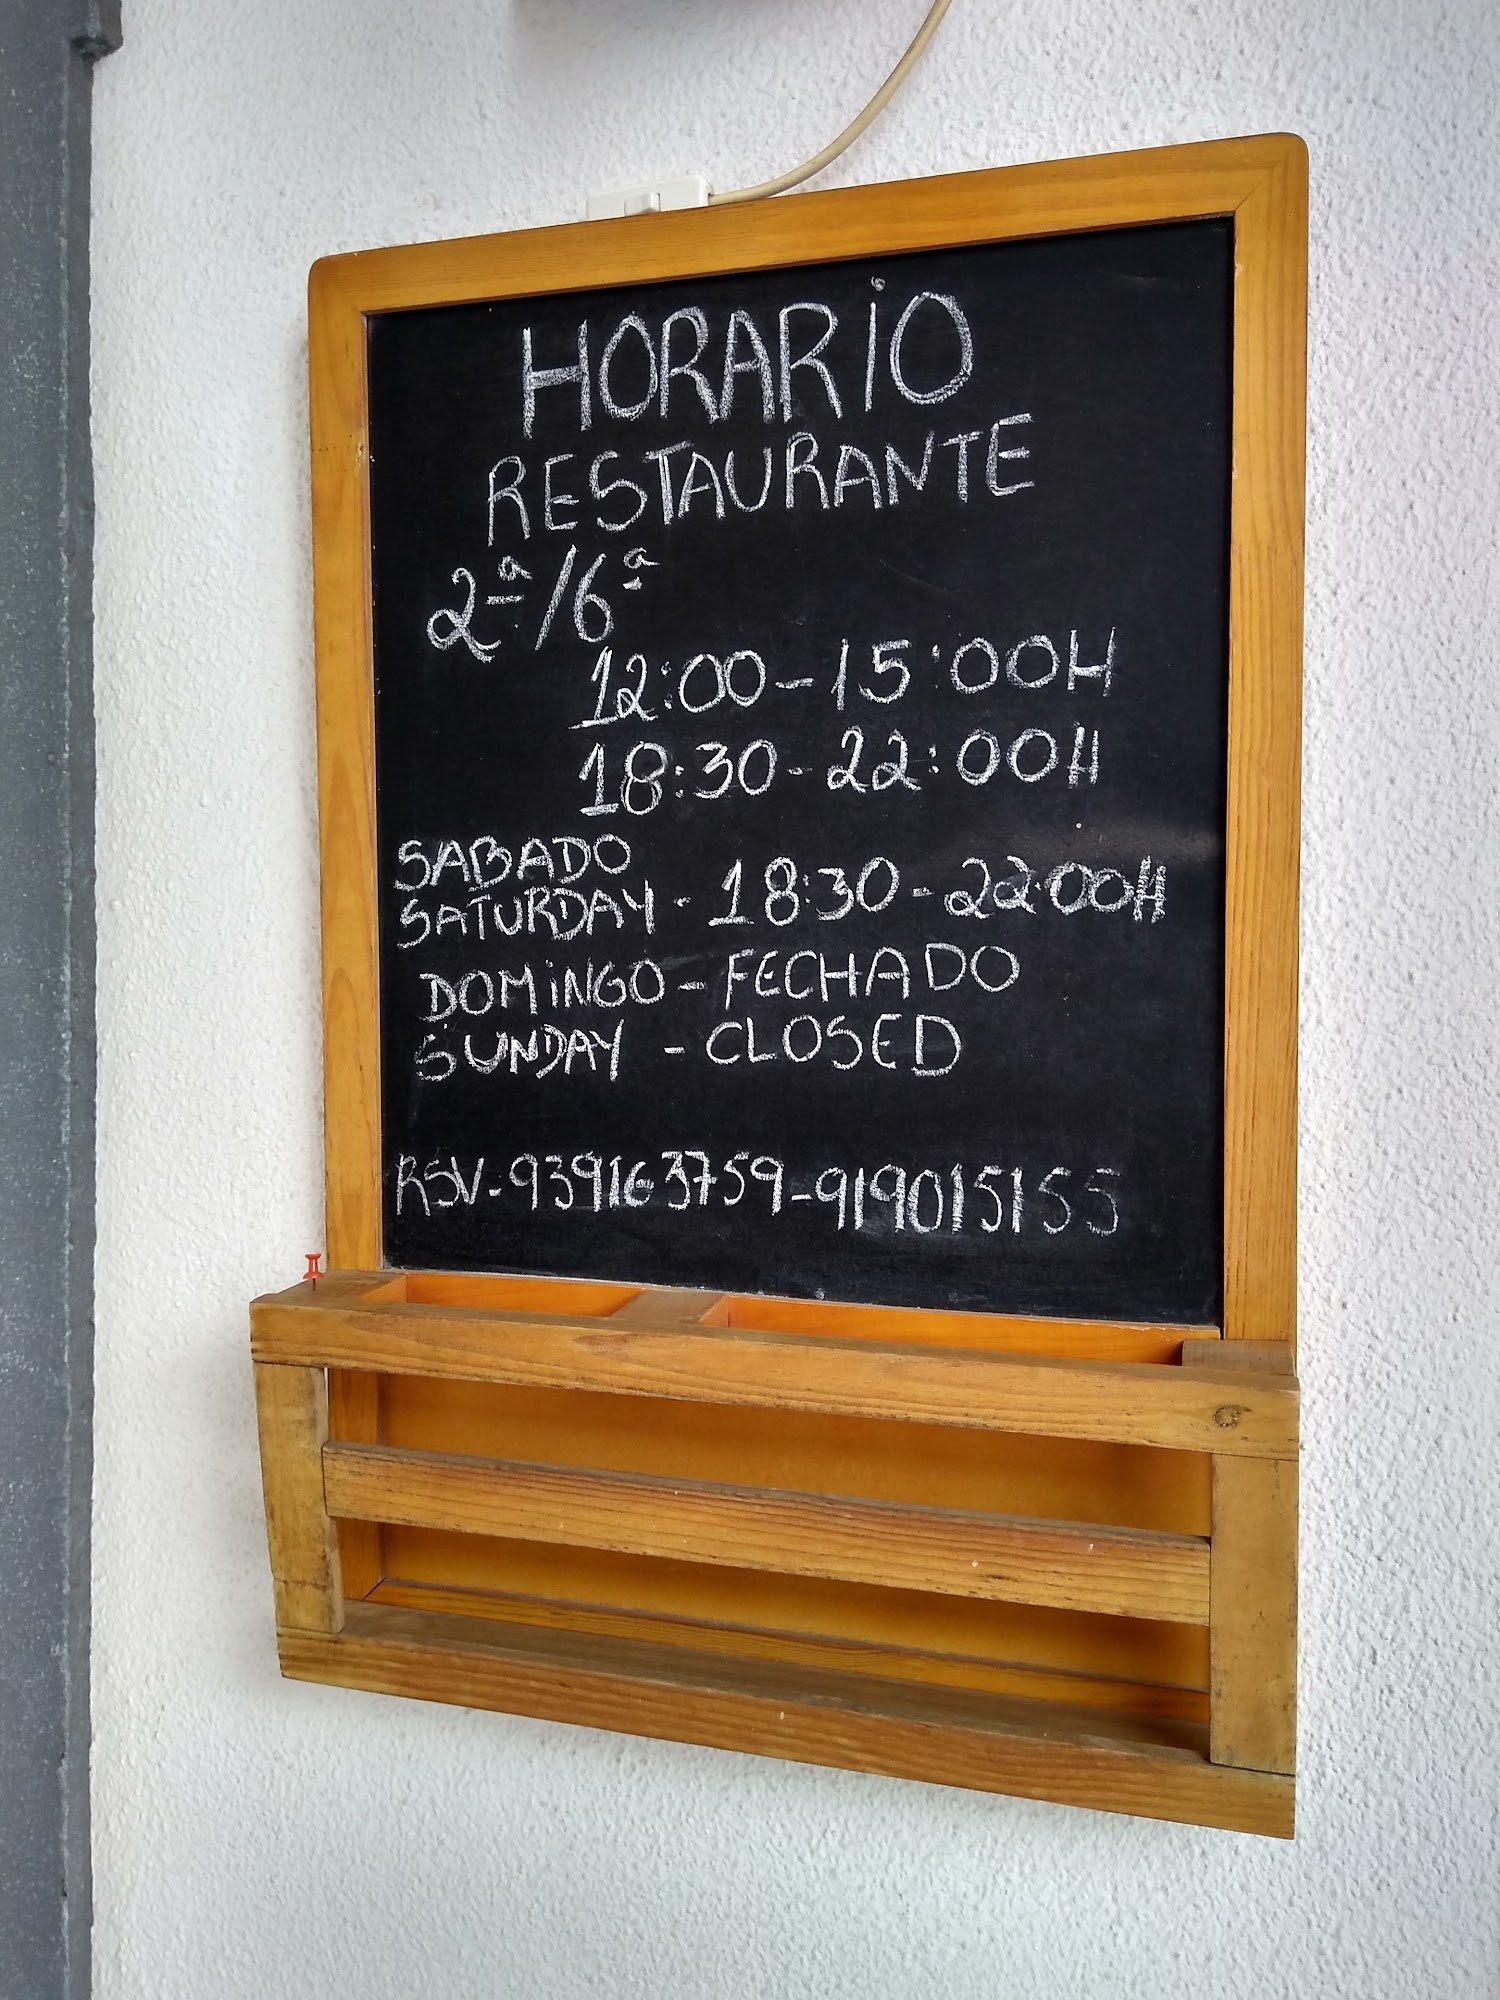 HORARIO
RESTAURANTE
2ª/6ª
12:00-15:00H
18:30-22:00H
SABADO
SATURDAY-18:30-22:00H
DOMINGO-FECHADO
SUNDAY-CLOSED
RSV-939163759-919015155